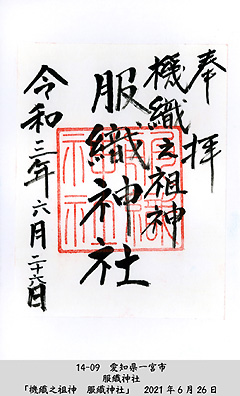 奉拝
機織之祖神
服織神社
令和三年六月二十六日
14-09 愛知県一宮市
服織神社
「機織之祖神 服織神社」 2021年6月26日